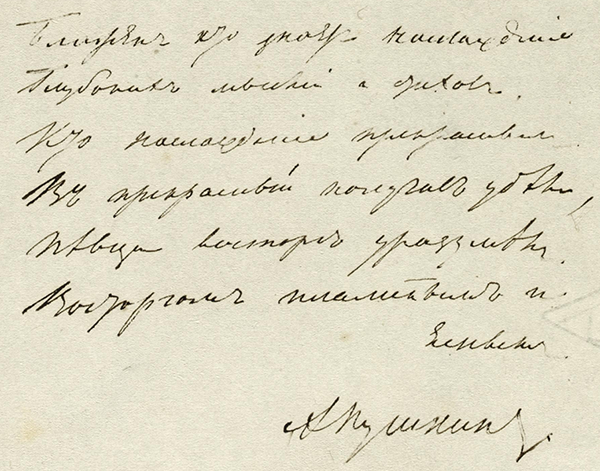 Блаженъ кто знаетъ наслажденіе
Глубокихъ мыслей и стиховъ.
Кто наслажденіе прекраснымъ
Въ прекрасный получилъ удѣлъ,
Пѣвца восторгъ уразумѣлъ.
Восторгомъ пламеннымъ и
яснымъ
А Пушкинъ